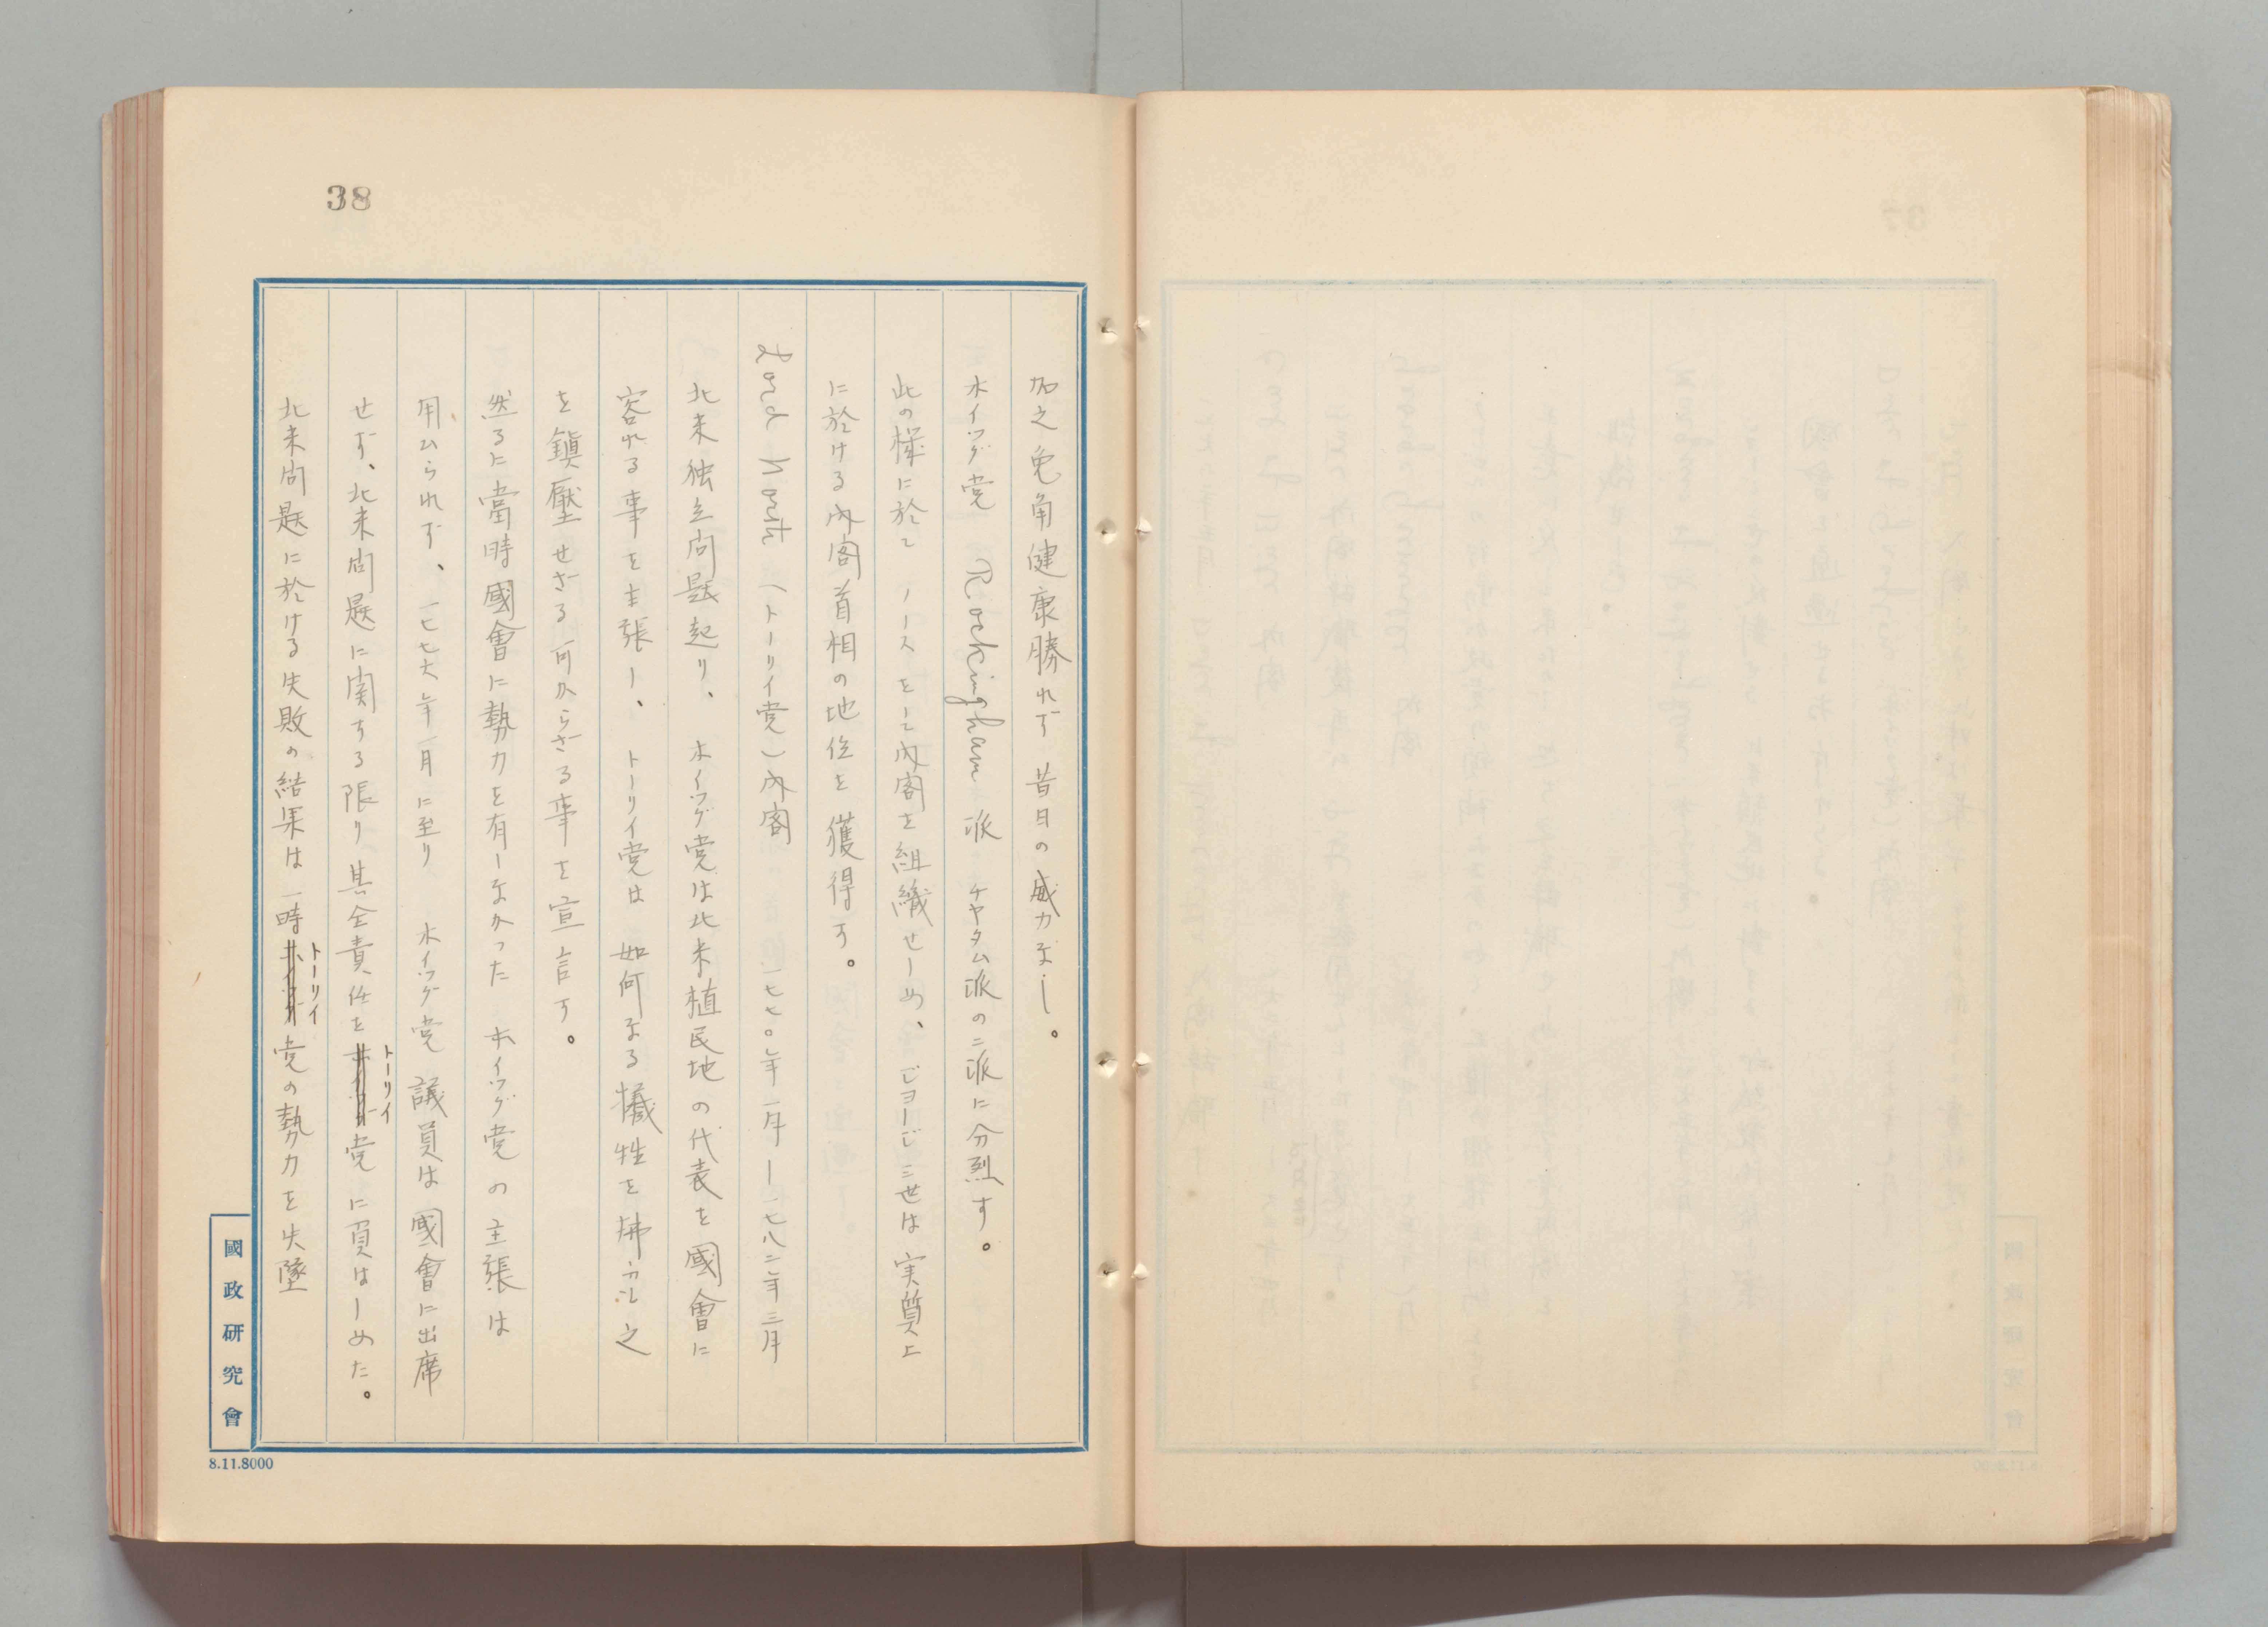 38
加之兔角健康勝れず 昔日の威力なし。
ホイッグ党 Rockingham 派 チヤタム派の二派に分烈す。
此の様に於て ノースをして内閣を組織せしめ、ジョージ三世は実質上
に於ける内閣首相の地位を獲得す。
Lord North (トーリイ党)内閣 一七七〇年一月ー一七八二年三月
北米独立問題起り、ホイッグ党は北米植民地の代表を國會に
容れる事を主張し、トーリイ党は 如何なる犠牲を拂ふも之
を鎮壓せざる可からざる事を宣言す。
然るに當時國會に勢力を有しなかった ホイッグ党の主張は
用ひられず、一七七六年一月に至り ホイッグ党 議員は國會に出席
せず、北米問題に関する限り其全責任をトーリイ党に負はしめた。
北米問題に於ける失敗の結果は一時トーリイ党の勢力を失墜
國政研究會
8.11.8000